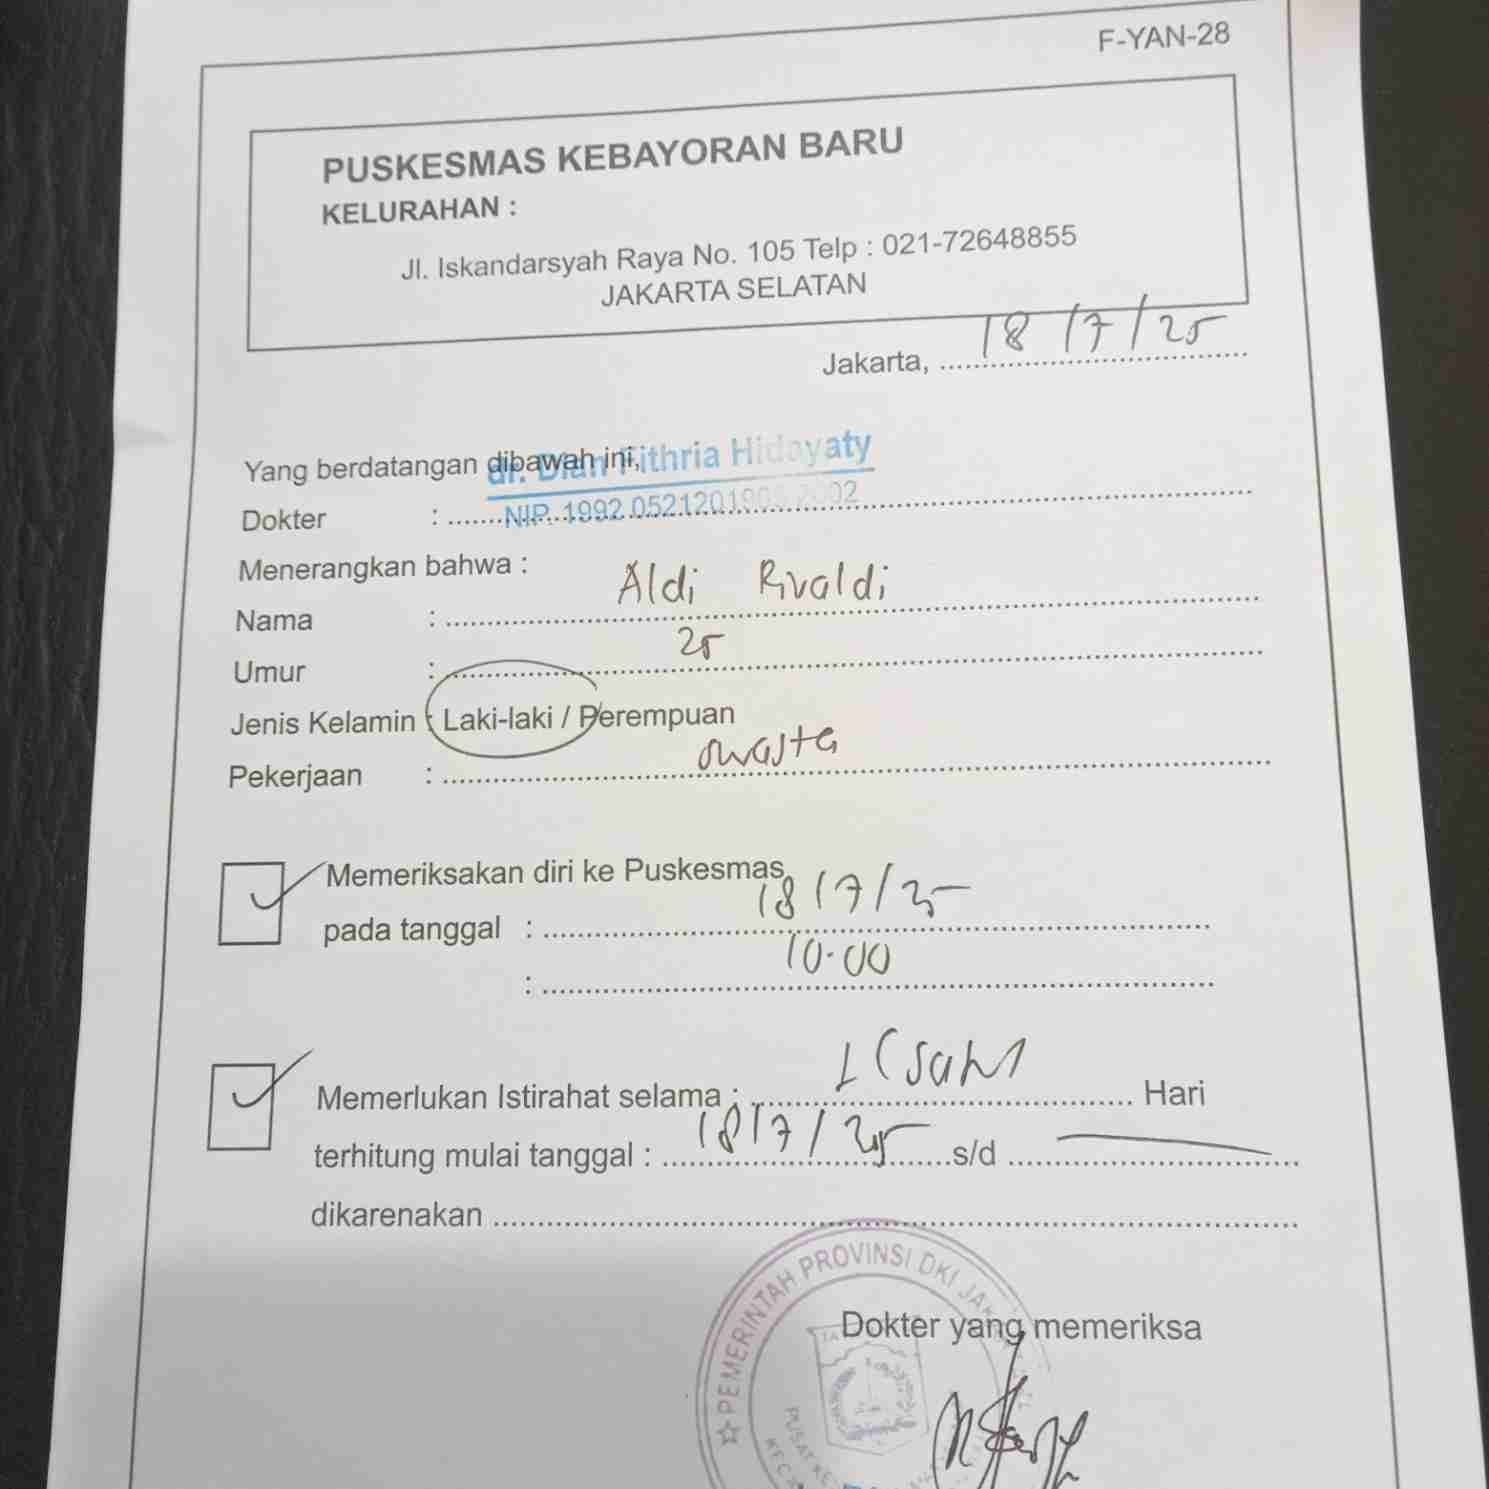 F-YAN-28
PUSKESMAS KEBAYORAN BARU
KELURAHAN :
Jl. Iskandarsyah Raya No. 105 Telp : 021-72648855
JAKARTA SELATAN
Jakarta, 18/7/25
Yang berdatangan dibawah ini,
dr. Dian Fithria Hidayaty
Dokter :
NIP. 199205212019032002
Menerangkan bahwa :
Nama : Aldi Rivaldi
Umur : 25
Jenis Kelamin : Laki-laki / Perempuan
Pekerjaan : swasta
Memeriksakan diri ke Puskesmas
pada tanggal : 18/7/25
: 10.00
Memerlukan Istirahat selama : 1 (satu) Hari
terhitung mulai tanggal : 18/7/25 s/d
dikarenakan
PEMERINTAH PROVINSI DKI
Dokter yang memeriksa